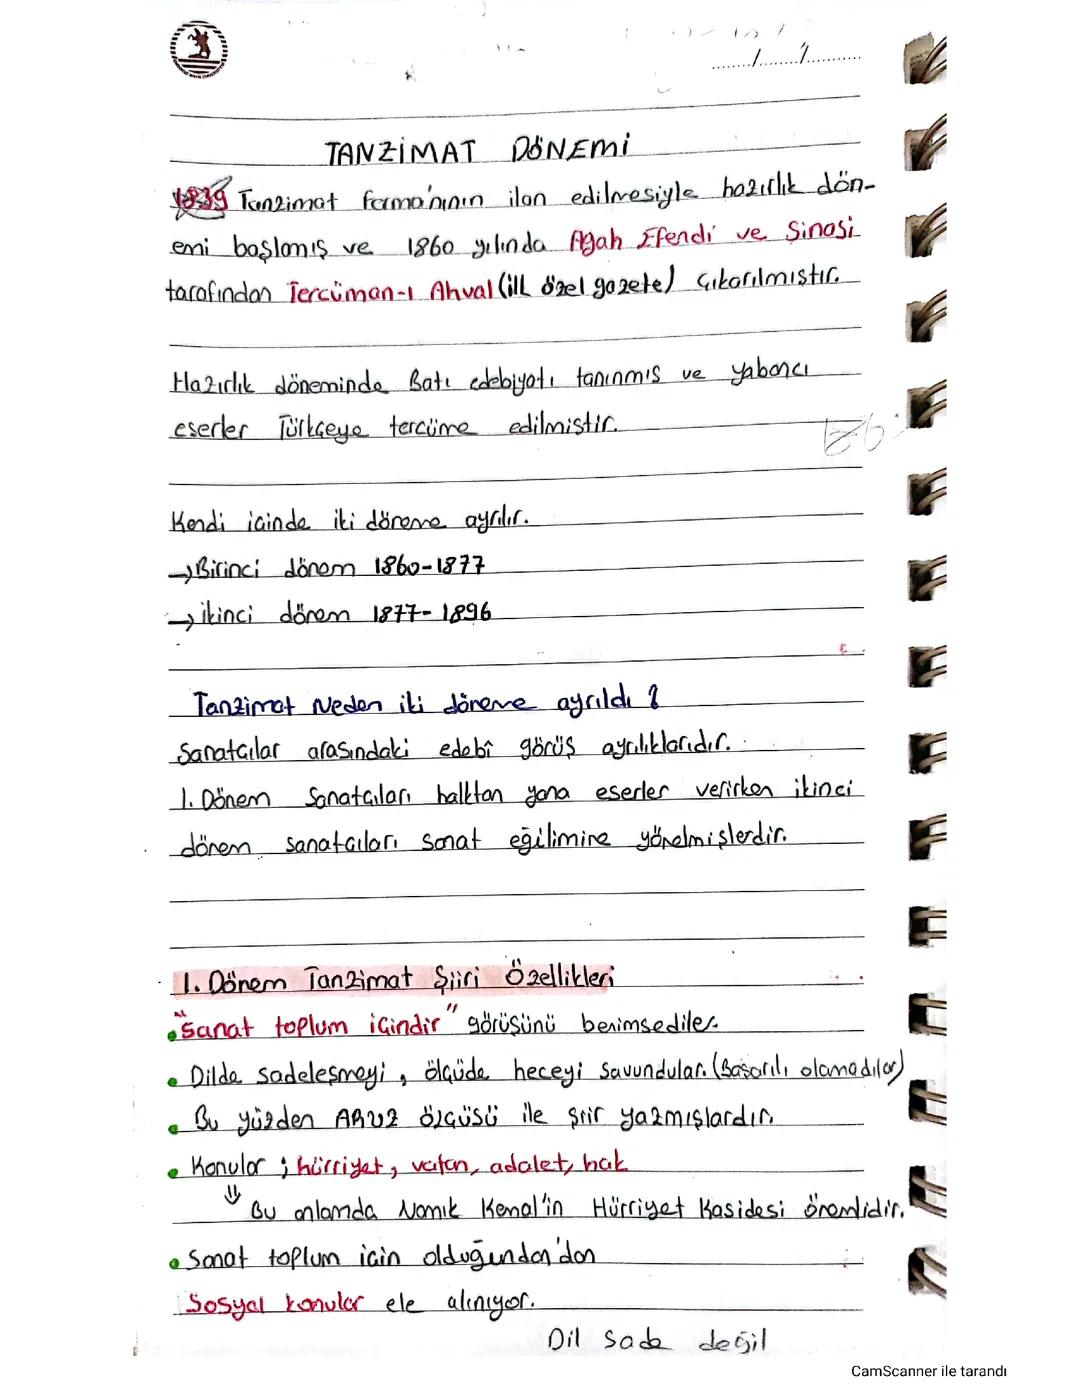 TANZİMAT DÖNEMİ
1839 Tanzimat ferma'nının ilan edilmesiyle hazırlık dön-
emi başlamış ve 1860 yılında Agah Efendi ve Şinasi
tarafından Tercüman-ı Ahval (ilk özel gazete) çıkarılmıştır.
Hazırlık döneminde Batı edebiyatı tanınmış ve yabancı
eserler Türkçeye tercüme edilmiştir.
Kendi içinde iki döneme ayrılır.
→Birinci dönem 1860-1877
→ikinci dönem 1877-1896
Tanzimat Neden iki döneme ayrıldı ?
Sanatçılar arasındaki edebî görüş ayrılıklarıdır.
1. Dönem Sanatçıları halktan yana eserler verirken ikinci
dönem sanatçıları sanat eğilimine yönelmişlerdir.
1. Dönem Tanzimat Şiiri Özellikleri
• "Sanat toplum içindir" görüşünü benimsediler.
• Dilde sadeleşmeyi, ölçüde heceyi savundular. (Başarılı olamadılar)
• Bu yüzden ARUZ ölçüsü ile şiir yazmışlardır.
• Konular ; hürriyet, vatan, adalet, hak
⇓ Bu anlamda Namık Kemal'in Hürriyet Kasidesi önemlidir.
• Sanat toplum için olduğundan'dan
Sosyal konular ele alınıyor.
Dil sade değil
CamScanner ile tarandı